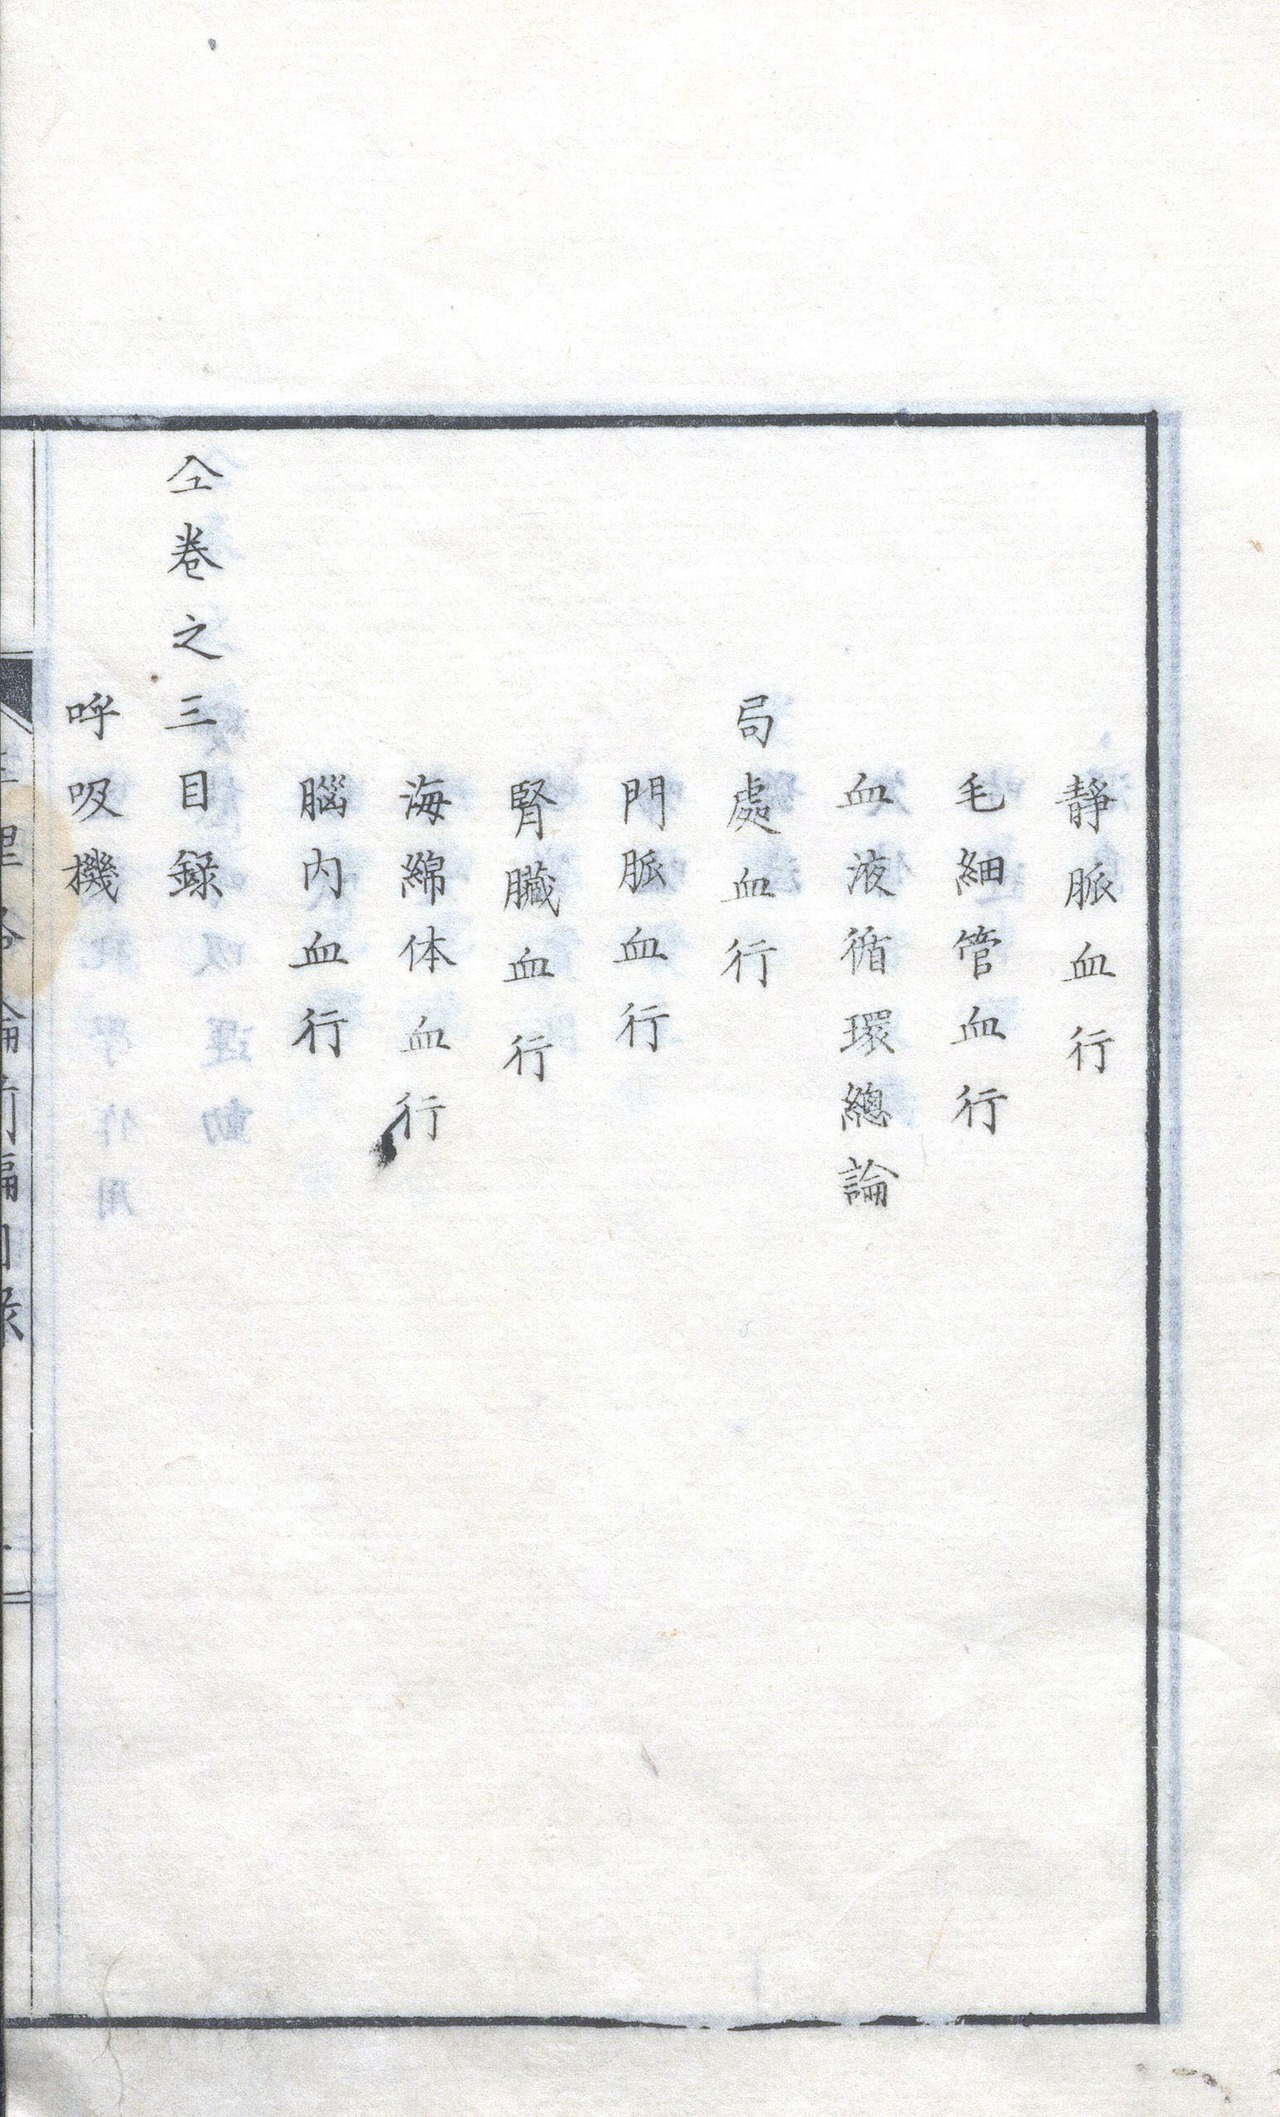 靜脈血行
毛細管血行
血液循環總論
局處血行
門脈血行
腎臟血行
海綿体血行
腦內血行
仝卷之三目録
呼吸機